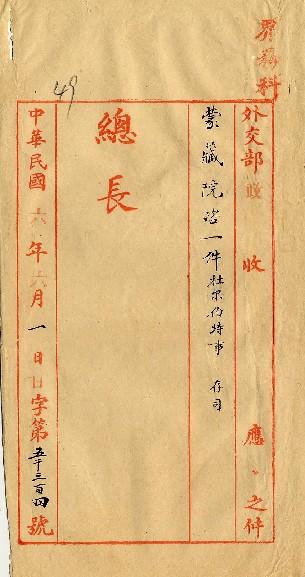 49
外交部收 收 應 之件
蒙藏院咨一件杜尔伯特事 存司
總長
中華民國六年六月一日 字第五千三百四號